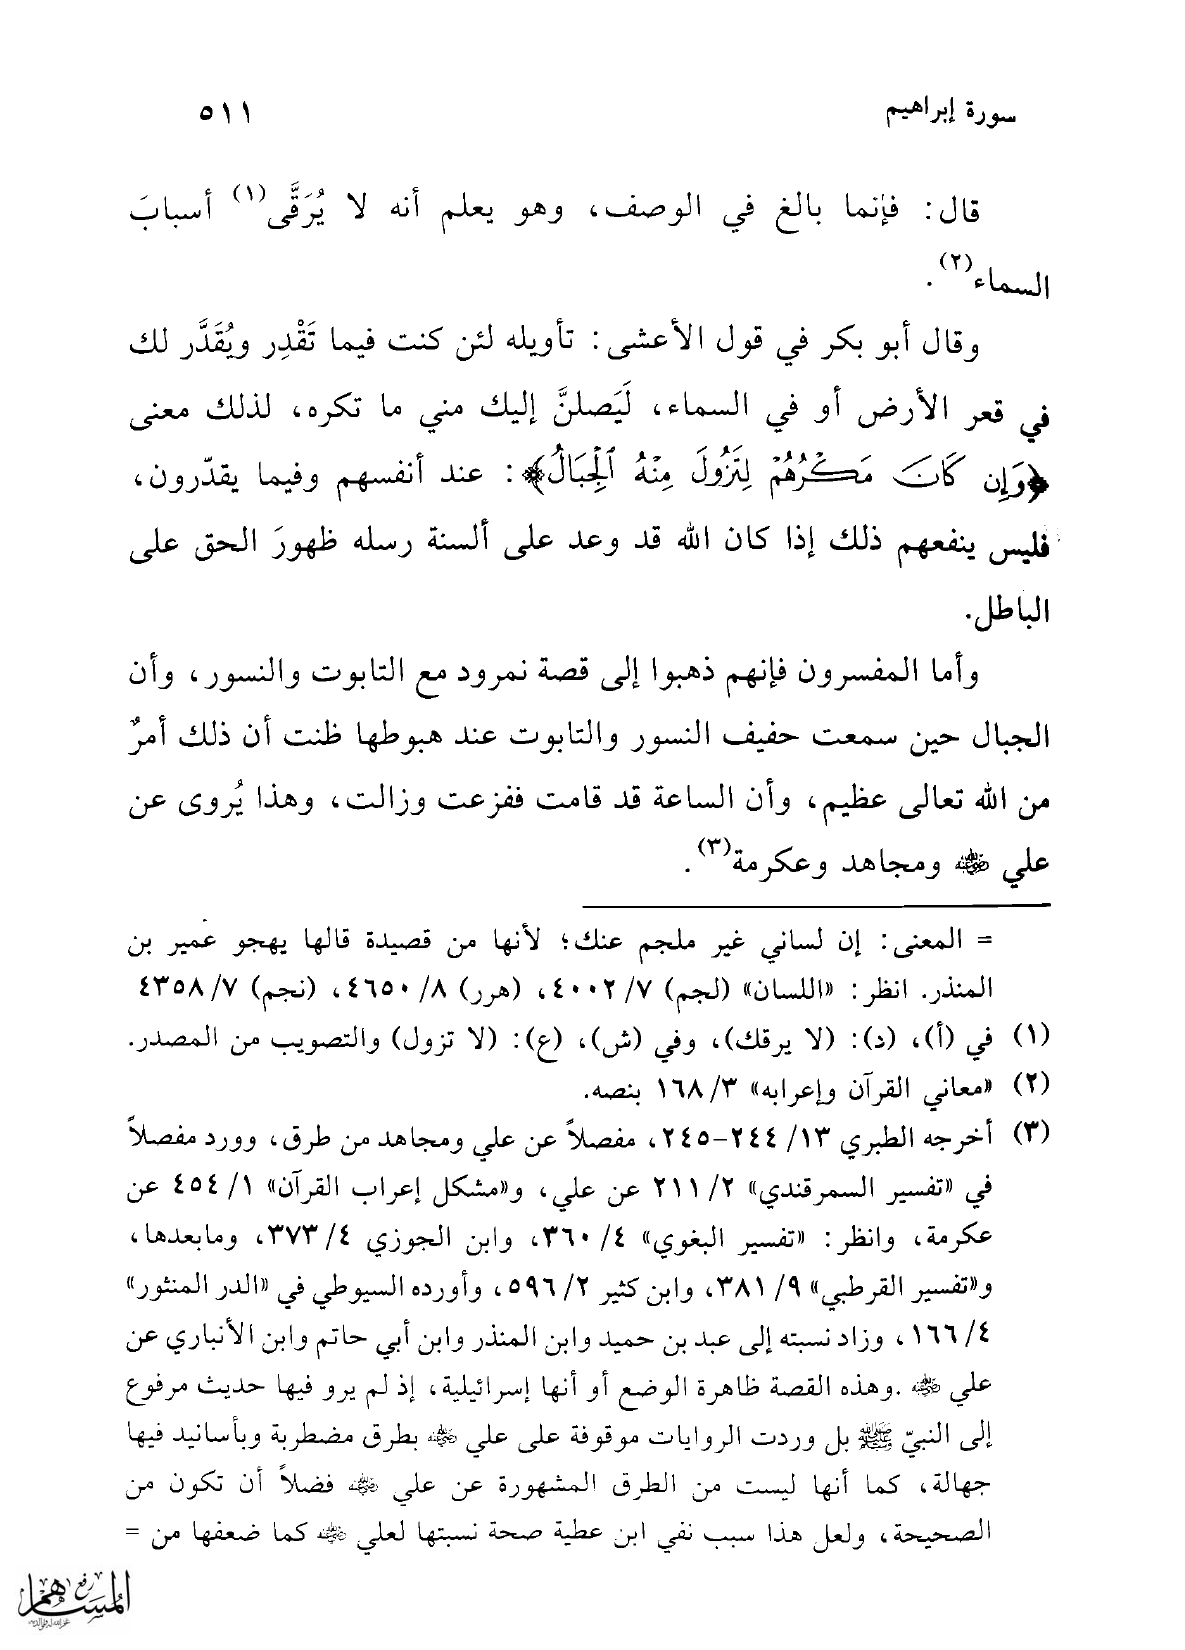 سورة إبراهيم
٥١١
قال: فإنما بالغ في الوصف، وهو يعلم أنه لا يُرَقَّى(١) أسبابَ
السماء(٢).
وقال أبو بكر في قول الأعشى: تأويله لئن كنت فيما تَقْدِر ويُقَدَّر لك
في قعر الأرض أو في السماء، لَيَصلنَّ إليك مني ما تكره، لذلك معنى
﴿وَإِن كَانَ مَكْرُهُمْ لِتَزُولَ مِنْهُ ٱلْجِبَالُ﴾: عند أنفسهم وفيما يقدّرون،
فليس ينفعهم ذلك إذا كان الله قد وعد على ألسنة رسله ظهورَ الحق على
الباطل.
وأما المفسرون فإنهم ذهبوا إلى قصة نمرود مع التابوت والنسور، وأن
الجبال حين سمعت حفيف النسور والتابوت عند هبوطها ظنت أن ذلك أمرٌ
من الله تعالى عظيم، وأن الساعة قد قامت ففزعت وزالت، وهذا يُروى عن
علي ﷺ ومجاهد وعكرمة(٣).
= المعنى: إن لساني غير ملجم عنك؛ لأنها من قصيدة قالها يهجو عمير بن
المنذر. انظر: «اللسان» (لجم) ٧/ ٤٠٠٢، (هرر) ٨/ ٤٦٥٠، (نجم) ٧/ ٤٣٥٨
(١) في (أ)، (د): (لا يرقك)، وفي (ش)، (ع): (لا تزول) والتصويب من المصدر.
(٢) «معاني القرآن وإعرابه» ٣/ ١٦٨ بنصه.
(٣) أخرجه الطبري ١٣/ ٢٤٤-٢٤٥، مفصلاً عن علي ومجاهد من طرق، وورد مفصلاً
في «تفسير السمرقندي» ٢/ ٢١١ عن علي، و«مشكل إعراب القرآن» ١/ ٤٥٤ عن
عكرمة، وانظر: «تفسير البغوي» ٤/ ٣٦٠، وابن الجوزي ٤/ ٣٧٣، ومابعدها،
و«تفسير القرطبي» ٩/ ٣٨١، وابن كثير ٢/ ٥٩٦، وأورده السيوطي في «الدر المنثور»
٤/ ١٦٦، وزاد نسبته إلى عبد بن حميد وابن المنذر وابن أبي حاتم وابن الأنباري عن
علي رضي الله عنه .وهذه القصة ظاهرة الوضع أو أنها إسرائيلية، إذ لم يرو فيها حديث مرفوع
إلى النبيّ ﷺ بل وردت الروايات موقوفة على علي رضي الله عنه بطرق مضطربة وبأسانيد فيها
جهالة، كما أنها ليست من الطرق المشهورة عن علي رضي الله عنه فضلاً أن تكون من
الصحيحة، ولعل هذا سبب نفي ابن عطية صحة نسبتها لعلي رضي الله عنه كما ضعفها من =